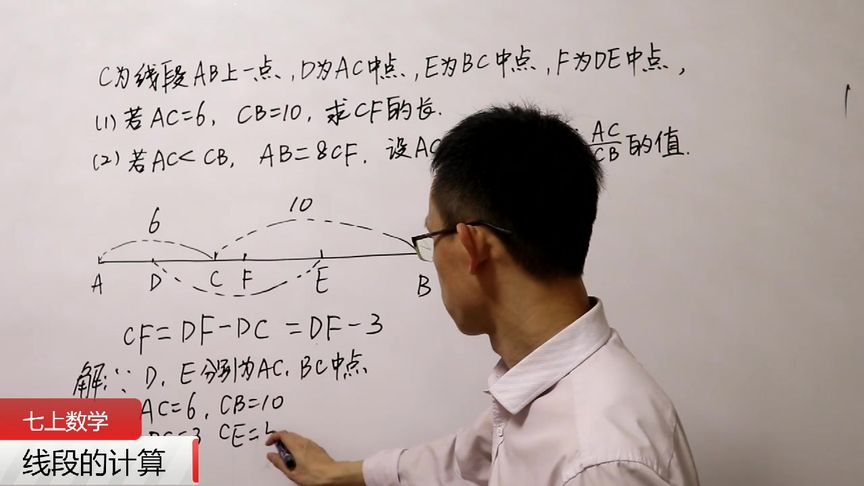 C为线段AB上一点,D为AC中点,E为BC中点,F为DE中点,
(1)若AC=6, CB=10, 求CF的长.
(2)若AC<CB, AB=8CF, 设AC AC/CB 的值.
6 10
A D C F E B
CF=DF-DC =DF-3
解:∵D、E分别为AC、BC中点
AC=6, CB=10
CE=
七上数学
线段的计算